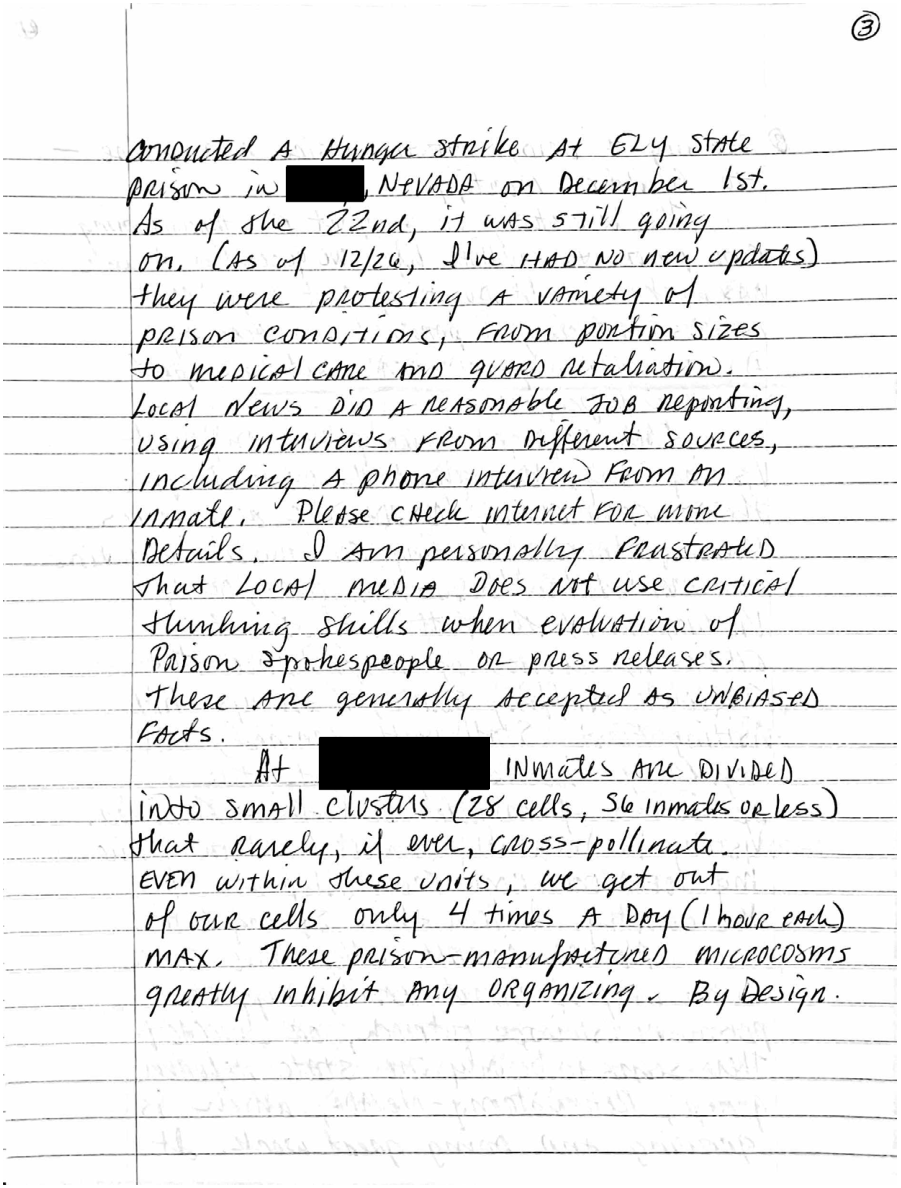 ③
conducted A Hunger strike At ELY State
prison in , NEVADA on December 1st.
As of the 22nd, it was still going
on. (As of 12/26, I've HAD NO new updates)
they were protesting A variety of
prison conditions, from portion sizes
to medical care and guard retaliation.
Local News DID A reasonable JOB reporting,
using interviews from Different sources,
including A phone interview From An
inmate. Please check internet for more
Details. I Am personally Frustrated
that Local media Does not use critical
thinking skills when evaluation of
Prison spokespeople or press releases.
These are generally Accepted As UNBIASED
FActs.
At INmates Are DIVIDED
into small clusters (28 cells, 56 inmates or less)
that rarely, if ever, cross-pollinate.
EVEN within these units, we get out
of our cells only 4 times A DAY (1 hour each)
MAX. These prison-manufactured microcosms
greatly inhibit Any ORGANIZING. By Design.